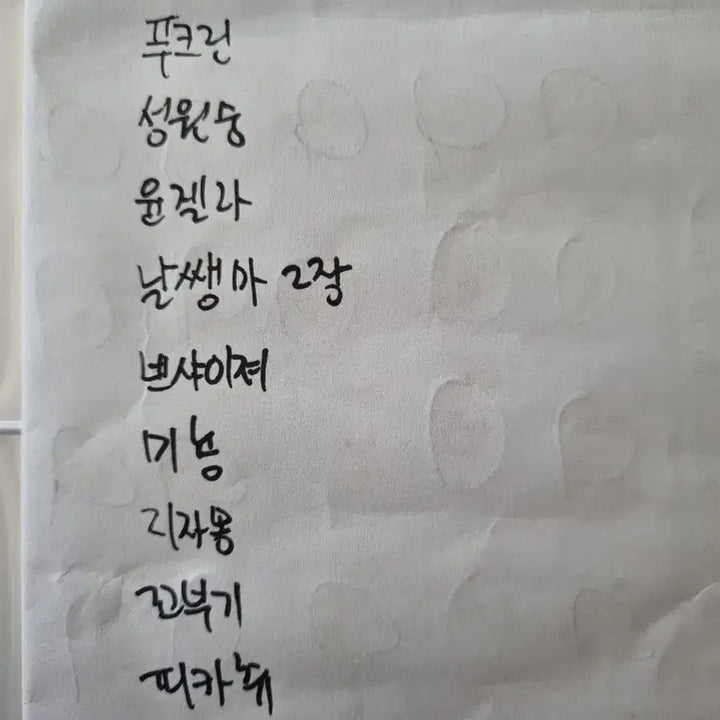 푸크린
성원숭
윤겔라
날쌩마 2장
쁘샤이져
미뇽
리자몽
꼬부기
피카츄